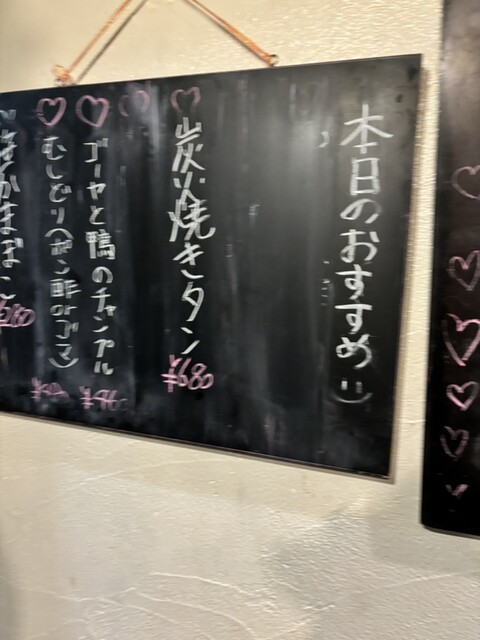 本日のおすすめ :)
炭火焼きタン
¥680
ゴーヤと鴨のチャンプル
むしどり(ポン酢orゴマ)
かまぼこ